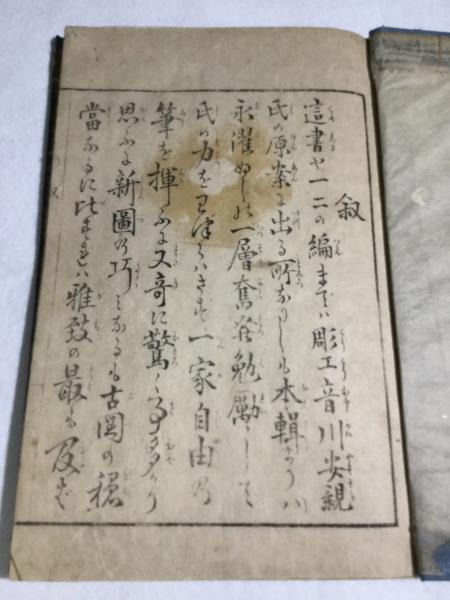 叙
這書や一二の編までハ彫工音川安親
氏の原案に出る所なりしも本輯よりハ
永濯ぬしの一層奮発勉励して
氏の力を 一家自由の
筆を揮ふに又奇に驚く事多かり
思ふに新図の巧ミなるも古図の穏
当なるに比すれバ雅致の最も及ば